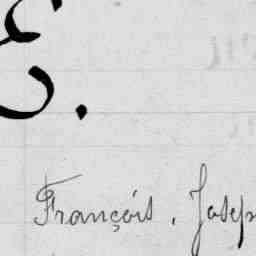 E.
François, Josep